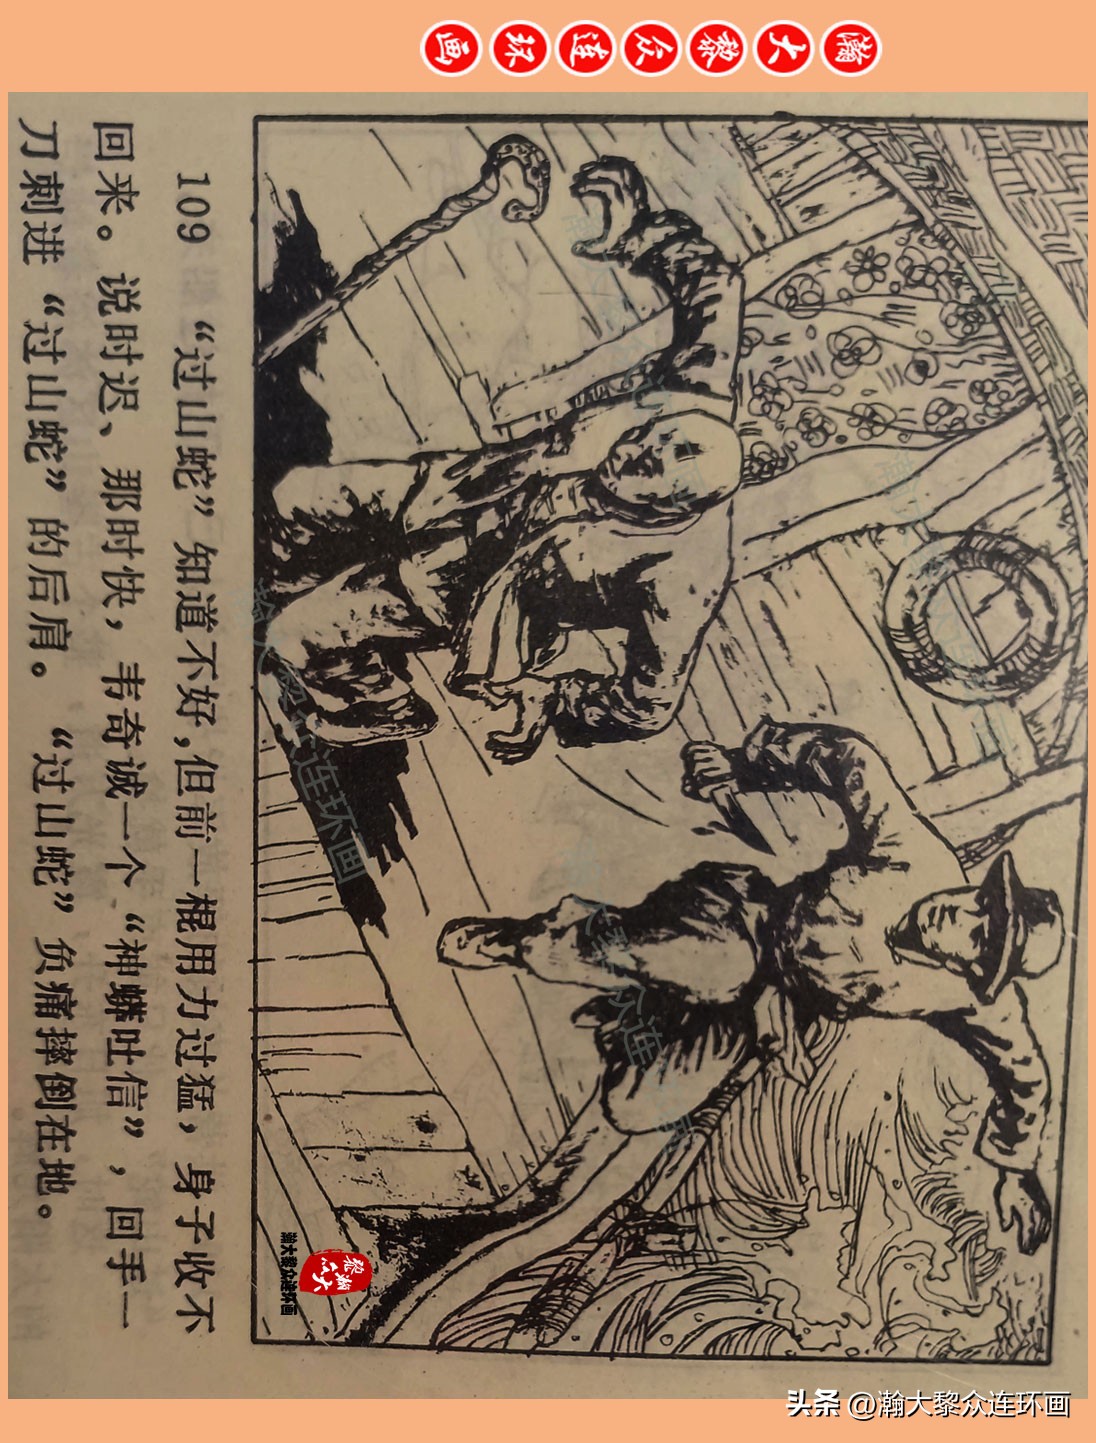 瀚大黎众连环画
109 “过山蛇”知道不好，但前一棍用力过猛，身子收不
回来。说时迟、那时快，韦奇诚一个“神蟒吐信”，回手一
刀刺进“过山蛇”的后肩。“过山蛇”负痛摔倒在地。
瀚大黎众连环画
头条 @瀚大黎众连环画